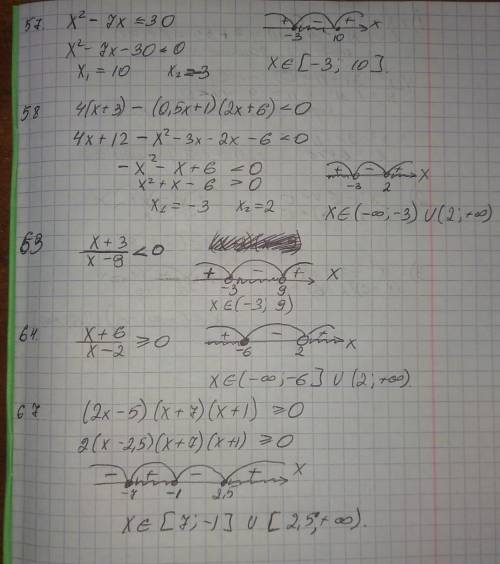 57. x² - 7x ≤ 30
x² - 7x - 30 ≤ 0
x₁ = 10 x₂ = -3
+ - + x
-3 10
x ∈ [-3; 10].
58 4(x+3) - (0,5x+1)(2x+6) < 0
4x + 12 - x² - 3x - 2x - 6 < 0
-x² - x + 6 < 0
x² + x - 6 > 0
x₁ = -3 x₂ = 2
+ - + x
-3 2
x ∈ (-∞; -3) ∪ (2; +∞)
(x+3)/(x-9) < 0
+ - + x
-3 9
x ∈ (-3; 9)
64. (x+6)/(x-2) ≥ 0
+ - + x
-6 2
x ∈ (-∞; -6] ∪ (2; +∞).
67 (2x-5)(x+7)(x+1) ≥ 0
2(x-2,5)(x+7)(x+1) ≥ 0
- + - + x
-7 -1 2,5
x ∈ [7; -1] ∪ [2,5; +∞).